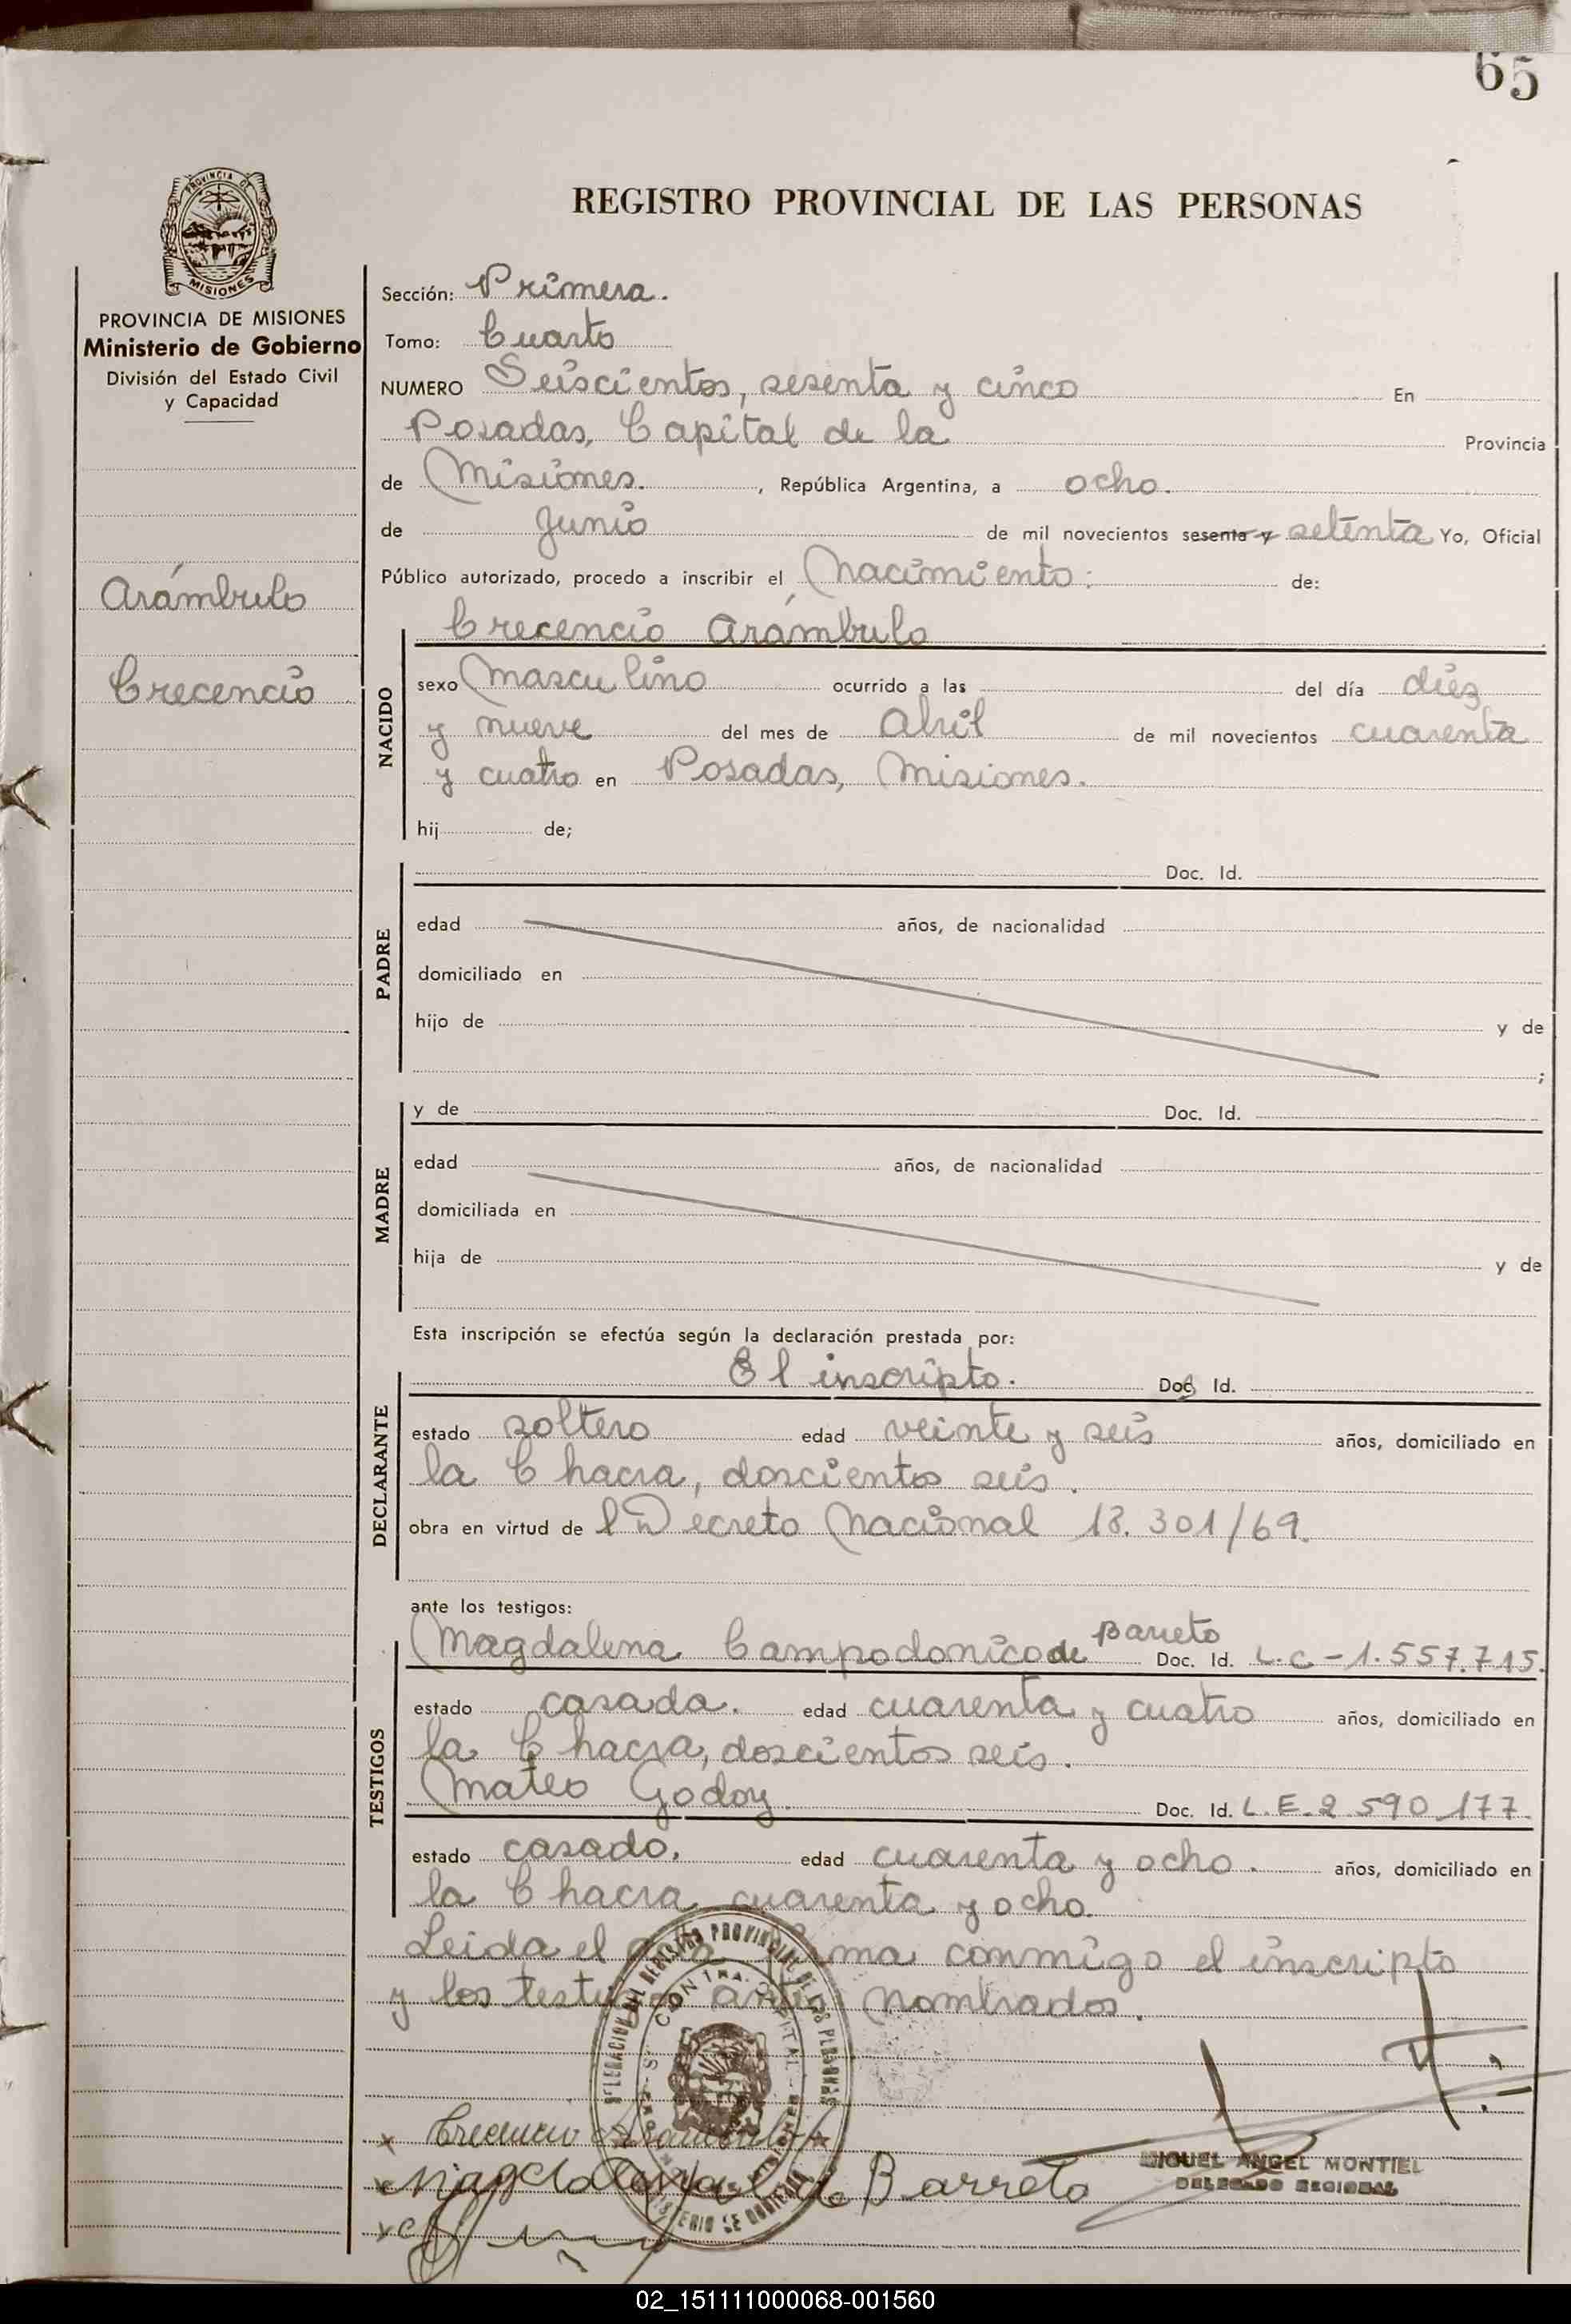 65
PROVINCIA DE
MISIONES
REGISTRO PROVINCIAL DE LAS PERSONAS
PROVINCIA DE MISIONES
Ministerio de Gobierno
División del Estado Civil
y Capacidad
Arámbulo
Crecencio
Sección: Primera.
Tomo: Cuarto
NUMERO Seiscientos, sesenta y cinco En
Posadas, Capital de la Provincia
de Misiones. , República Argentina, a ocho.
de Junio de mil novecientos sesenta y setenta Yo, Oficial
Público autorizado, procedo a inscribir el Nacimiento: de:
Crecencio Arámbulo
NACIDO
sexo Masculino ocurrido a las del día diez
y nueve del mes de Abril de mil novecientos cuarenta
y cuatro en Posadas, Misiones.
hij de;
PADRE
Doc. Id.
edad años, de nacionalidad
domiciliado en
hijo de y de
;
MADRE
y de Doc. Id.
edad años, de nacionalidad
domiciliada en
hija de y de
Esta inscripción se efectúa según la declaración prestada por:
DECLARANTE
El inscripto. Doc. Id.
estado soltero edad veinte y seis años, domiciliado en
la Chacra, doscientos seis.
obra en virtud de l Decreto Nacional 18.301/69.
ante los testigos:
TESTIGOS
Magdalena Campodonico de Barreto Doc. Id. L.C-1.557.715.
estado casada. edad cuarenta y cuatro años, domiciliado en
la Chacra, doscientos seis.
Mateo Godoy Doc. Id. L.E. 2 590 177.
estado casado. edad cuarenta y ocho. años, domiciliado en
la Chacra cuarenta y ocho.
Leida el acta firma conmigo el inscripto
y los testigos antes nombrados.
x Crecencio Arambulo
x Magdalena C de Barreto
MIGUEL ANGEL MONTIEL
DELEGADO REGIONAL
02_151111000068-001560